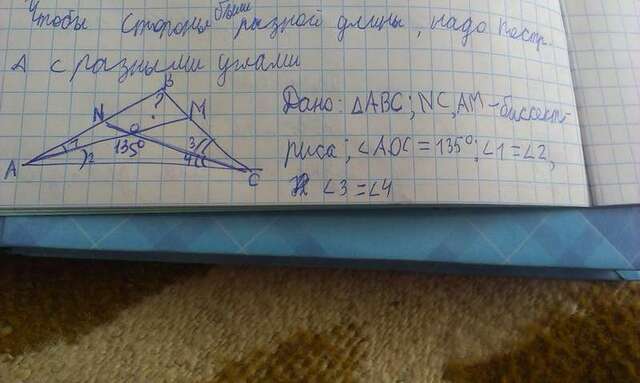 Чтобы стороны были разной длины, надо постр.
Δ с разными углами
B
?
N
M
O
A
1
2
135°
3
4
C
Дано: ΔABC; NC, AM - биссект-
риса; ∠AOC = 135°; ∠1 = ∠2,
∠3 = ∠4